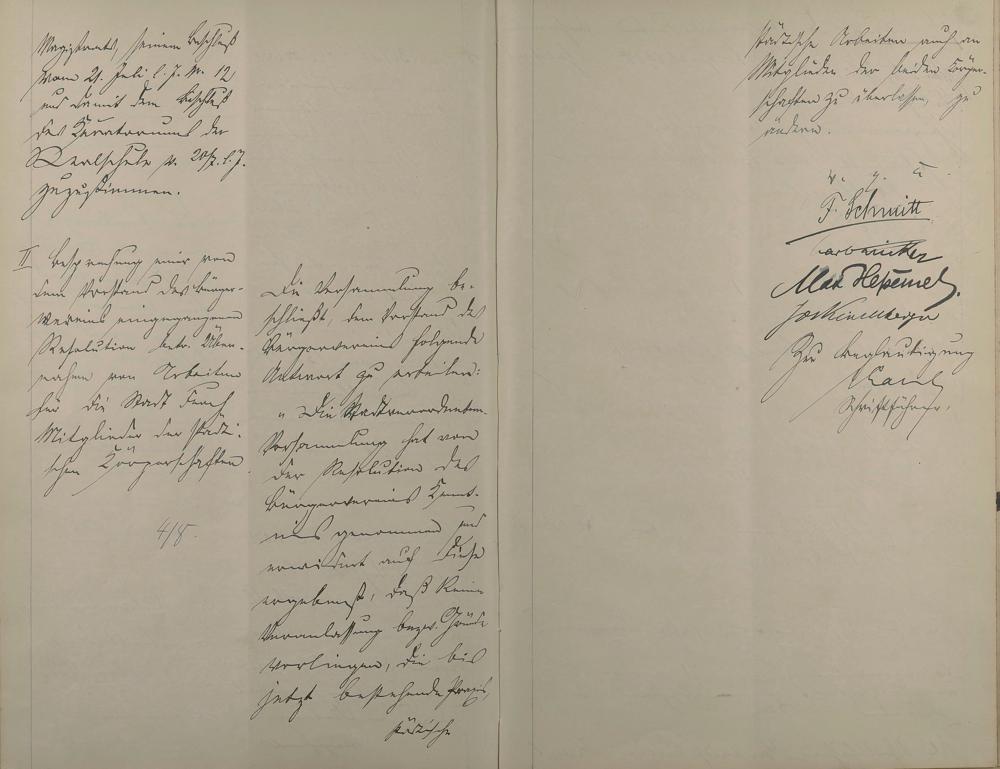 Magistrats, seinem Beschluß
vom 21. Juli l. J. No. 12
und damit dem Beschluß
des Kuratoriums der
Realschule v. 20/7. l. J.
zuzustimmen.
II Besprechung einer von
dem Vorstand des Bürger-
vereins eingegangenen
Resolution betr. Über-
nahme von Arbeiten
für die Stadt durch
Mitglieder der städti-
schen Körperschaften
4/8.
Die Versammlung be-
schließt, dem Vorstand des
Bürgervereins folgende
Antwort zu erteilen:
"Die Stadtverordneten-
Versammlung hat von
der Resolution des
Bürgervereins Kennt-
nis genommen und
erwidert auf diese
ergebenst, daß keine
Veranlassung bezw. Gründe
vorliegen, die bis
jetzt bestehende Praxis,
städtische
städtische Arbeiten auch an
Mitglieder der beiden Körper-
schaften zu überlassen, zu
ändern.
v. g. u.
F. Schmitt
Zur Beglaubigung
Schriftführer.